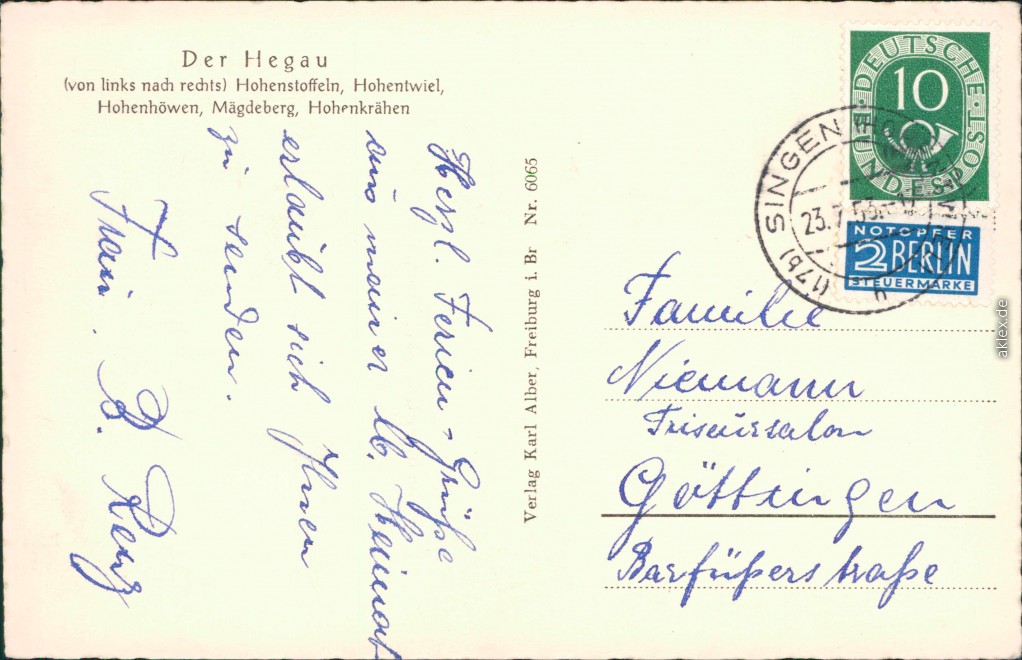 Der Hegau
(von links nach rechts) Hohenstoffeln, Hohentwiel,
Hohenhöwen, Mägdeberg, Hohenkrähen
Herzl. Ferien-Grüße
aus meiner lb. Heimat
erlaubt sich Ihnen
zu senden.
Frau. B. Renz
Verlag Karl Alber, Freiburg i. Br Nr. 6065
DEUTSCHE BUNDESPOST
10
(17b) SINGEN
23.7.53
NOTOPFER
2 BERLIN
STEUERMARKE
Familie
Niemann
Friseursalon
Göttingen
Barfüßerstraße
aklex.de